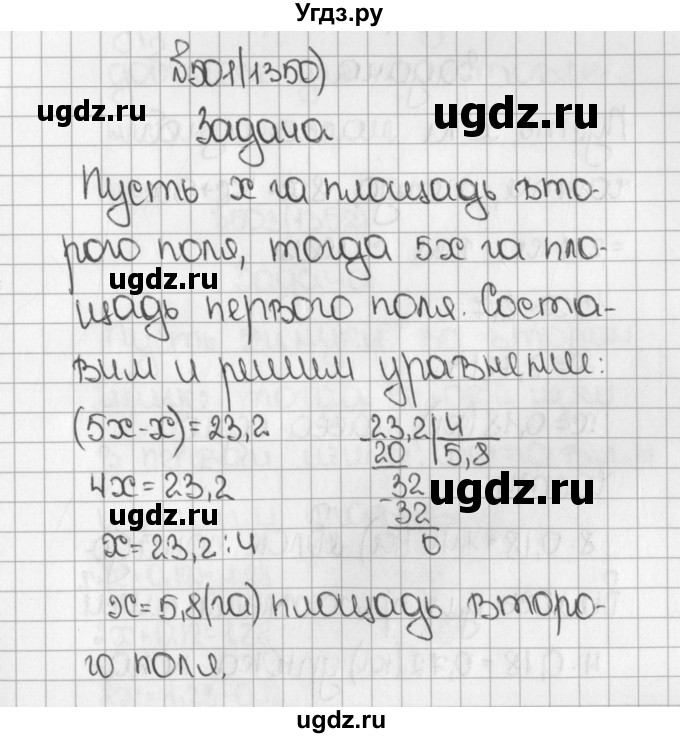 Угдз.ру
№501(1350)
ugdz.ru ugdz.ru
Задача
Пусть x га площадь вто-
рого поля, тогда 5x га пло-
ugdz.ru
щадь первого поля. Соста-
вим и решим уравнение:
(5x-x)=23,2
4x=23,2
ugdz.ru
x=23,2:4
23,2 | 4
20 | 5,8
32
32
0
ugdz.ru
x=5,8(га) площадь второ-
го поля.
ugdz.ru